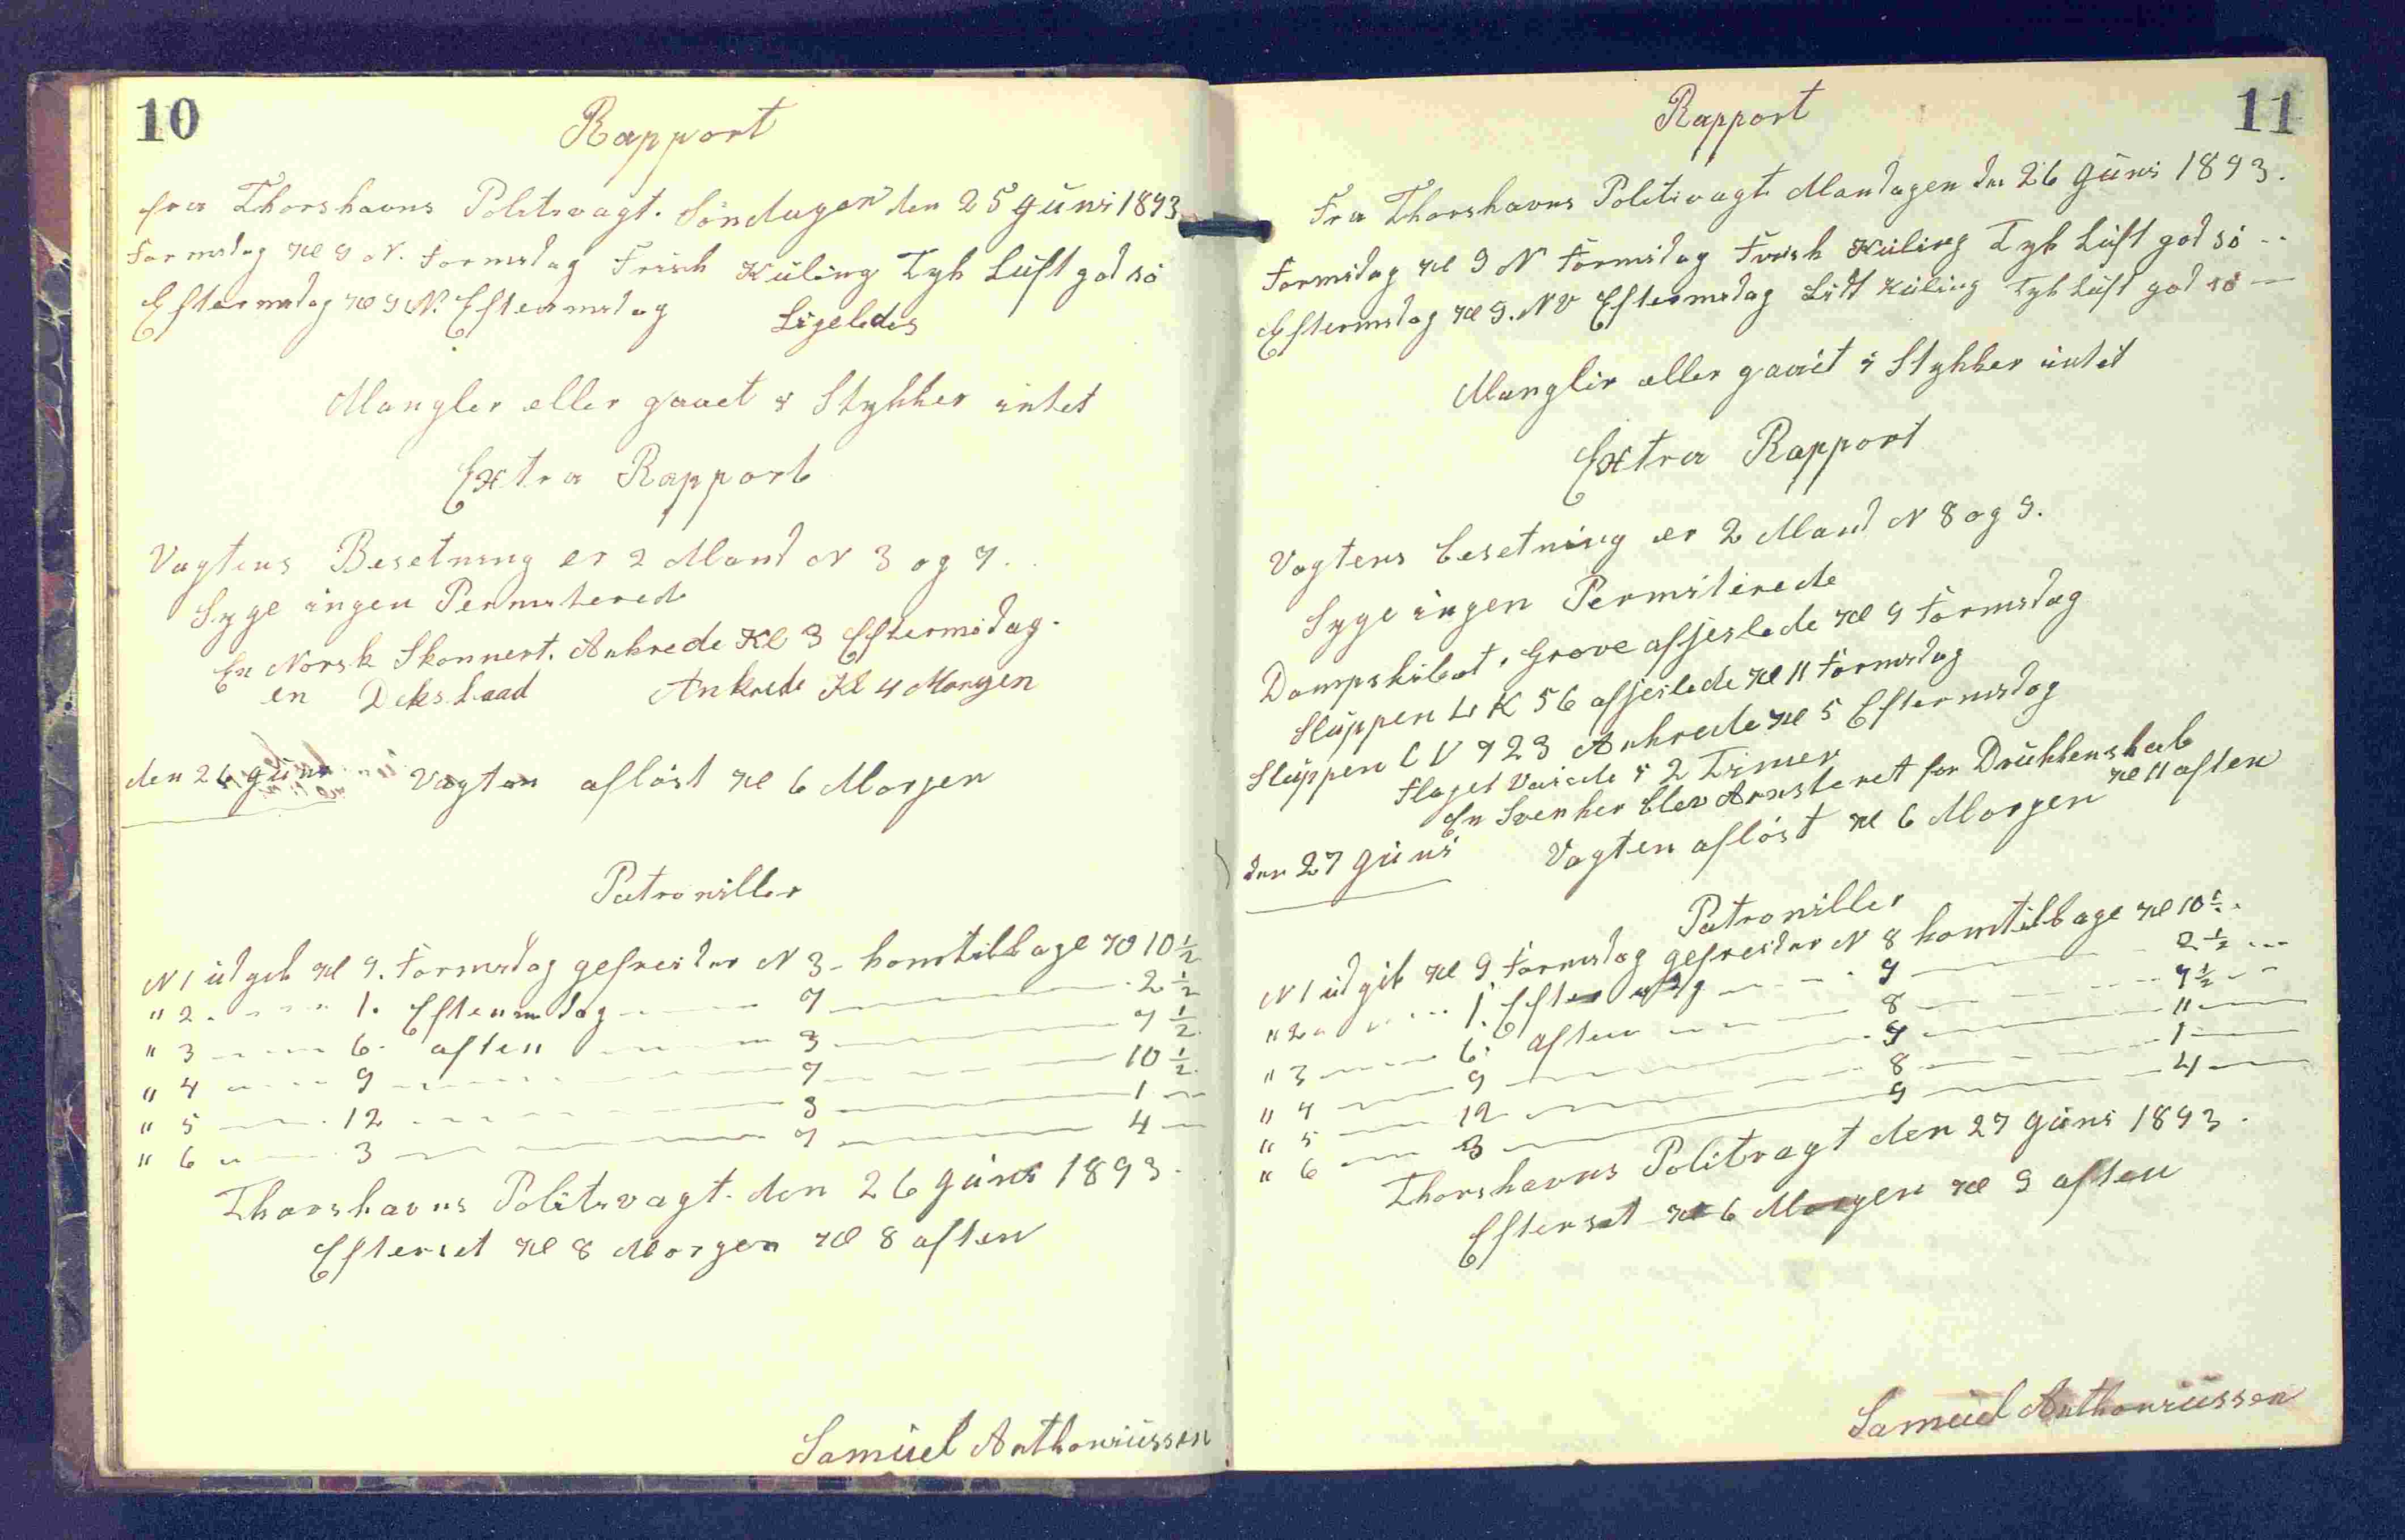 10
Rapport
fra Thorshavns Politivagt. Söndagen den 25 Juni 1893
Formidag Kl 9 N. Formidag Frisk Kuling Tyk Luft god sö
Eftermidag Kl 9 N. Eftermidag Ligeledes
Mangler eller gaaet i Stykker intet
Extra Rapport
Vagtens Besetning er 2 Mand N 3 og 7.
Syge ingen Permiterede
En Norsk Skonnert. Ankrede Kl 3 Eftermidag.
en Deksbaad Ankrede Kl 4 Morgen
den 26 Juni Vagten aflöst Kl 6 Morjen
Patroniller
N 1 udgik Kl 9. Formidag gefreider N 3 - komtilbage Kl 10 1/2
" 2 1. Eftermidag 7 2 1/2
" 3 6. aften 3 7 1/2
" 4 9 7 10 1/2
" 5 12 3 1
" 6 3 7 4
Thorshavns Politivagt. den 26 Juni 1893.
Efterset Kl 8 Morgen Kl 8 aften
Samuel Anthoniussen
11
Rapport
Fra Thorshavns Politivagt Mandagen den 26 Juni 1893.
Formidag Kl 9 N Formidag Frisk Kuling Tyk Luft god sö
Eftermidag Kl 9. NV Eftermidag Lidt Kuling Tyk Luft god sö
Mangler eller gaaet i Stykker intet
Extra Rapport
Vagtens besetning er 2 Mand N 8 og 9.
Syge ingen Permiterede
Dampskibet, Grove afsejlede Kl 9 Formidag
Sluppen LK 56 afsejlede Kl 11 Formidag
Sluppen CV 723 Ankrede Kl 5 Eftermidag
Flaget Vaiede i 2 Timer
En Svensker blev Arresteret for Drukkenskab
Kl 11 aften
den 27 Juni Vagten aflöst Kl 6 Morjen
Patroniller
N 1 udgik Kl 9 Formidag gefreider N 8 komtilbage Kl 10 1/2.
" 2 1. Eftermidag 9 2 1/2
" 3 6. aften 8 7 1/2
" 4 9 9 11
" 5 12 8 1
" 6 3 9 4
Thorshavns Politivagt den 27 Juni 1893.
Efterset Kl 6 Morgen Kl 9 aften
Samuel Anthoniussen